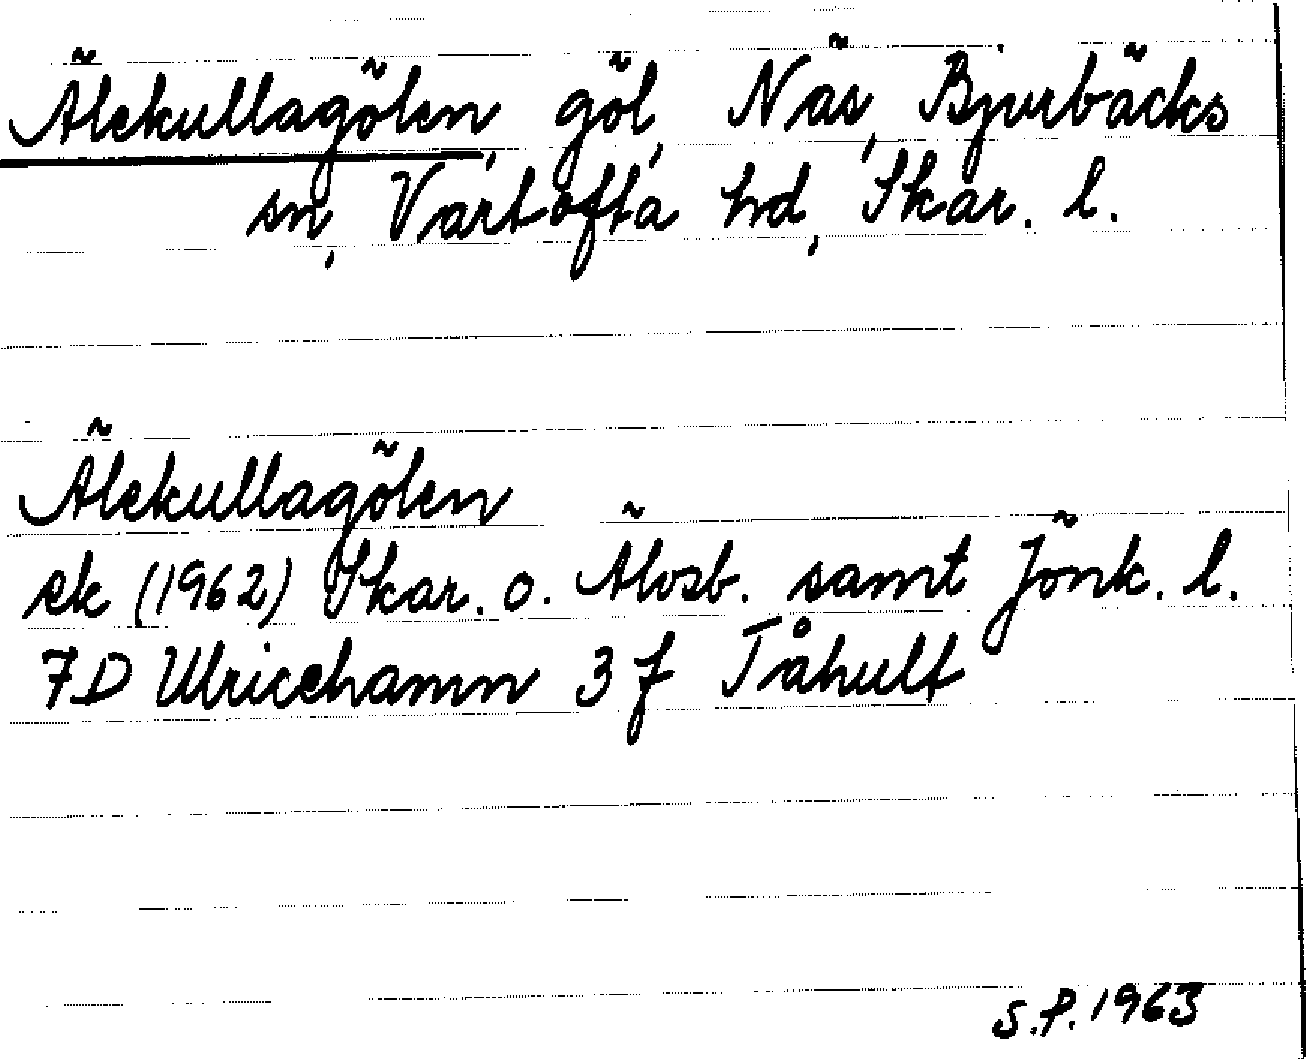 Älekullagölen, göl, Näs, Bjurbäcks
sn, Vartofta hd, Skar. l.
Älekullagölen
ek (1962) Skar. o. Älvsb. samt Jönk. l.
7D Ulricehamn 3f Tåhult
S.P. 1963